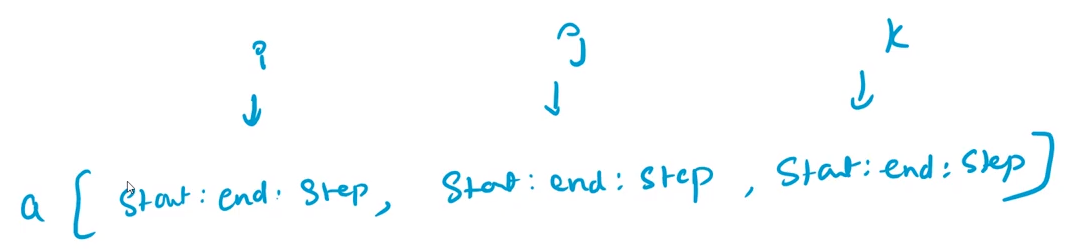 i j k
a [ Start : end : Step, Start : end : step , Start : end : step ]